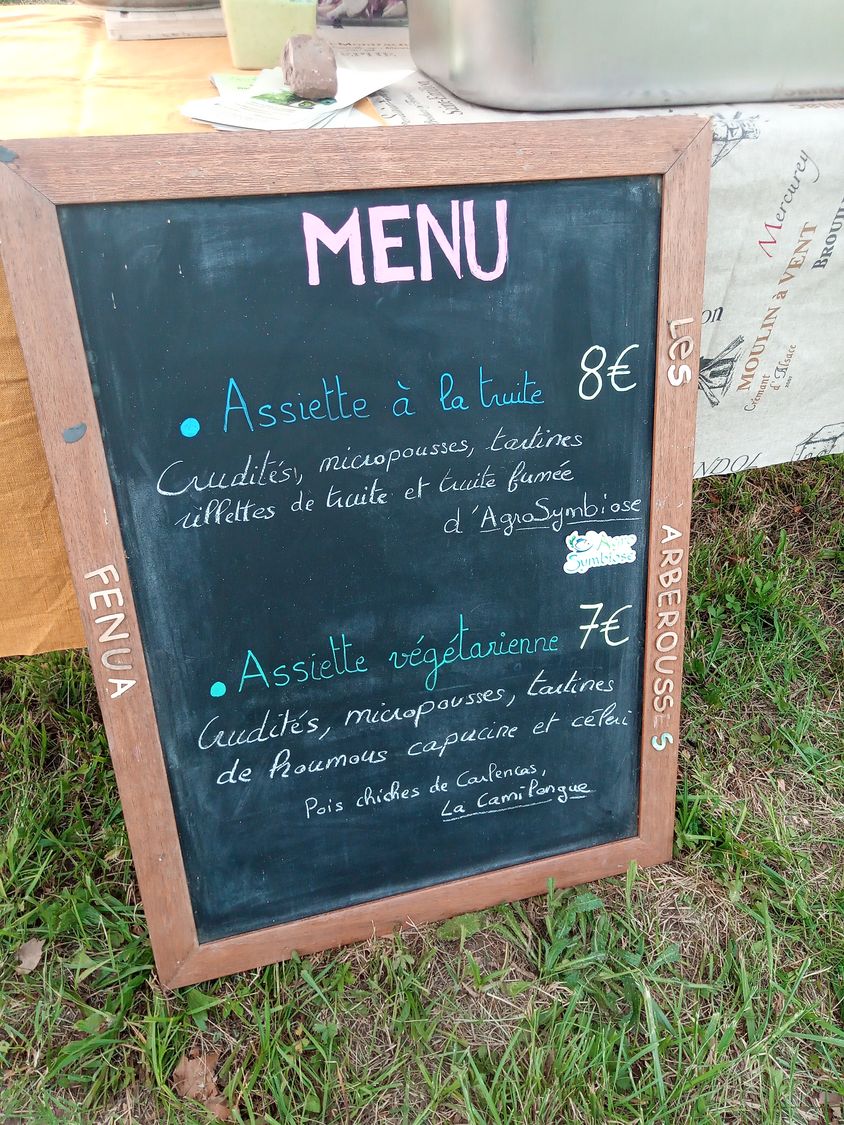 MENU
• Assiette à la truite 8€
Crudités, micropousses, tartines
rillettes de truite et truite fumée
d'AgroSymbiose
Agro
Symbiose
• Assiette végétarienne 7€
Crudités, micropousses, tartines
de houmous capucine et céleri
Pois chiches de Carlencas,
La Camilongue
FENUA
LES
ARBEROUSSES
Mercurey
MOULIN à VENT
Crémant
d'Alsace